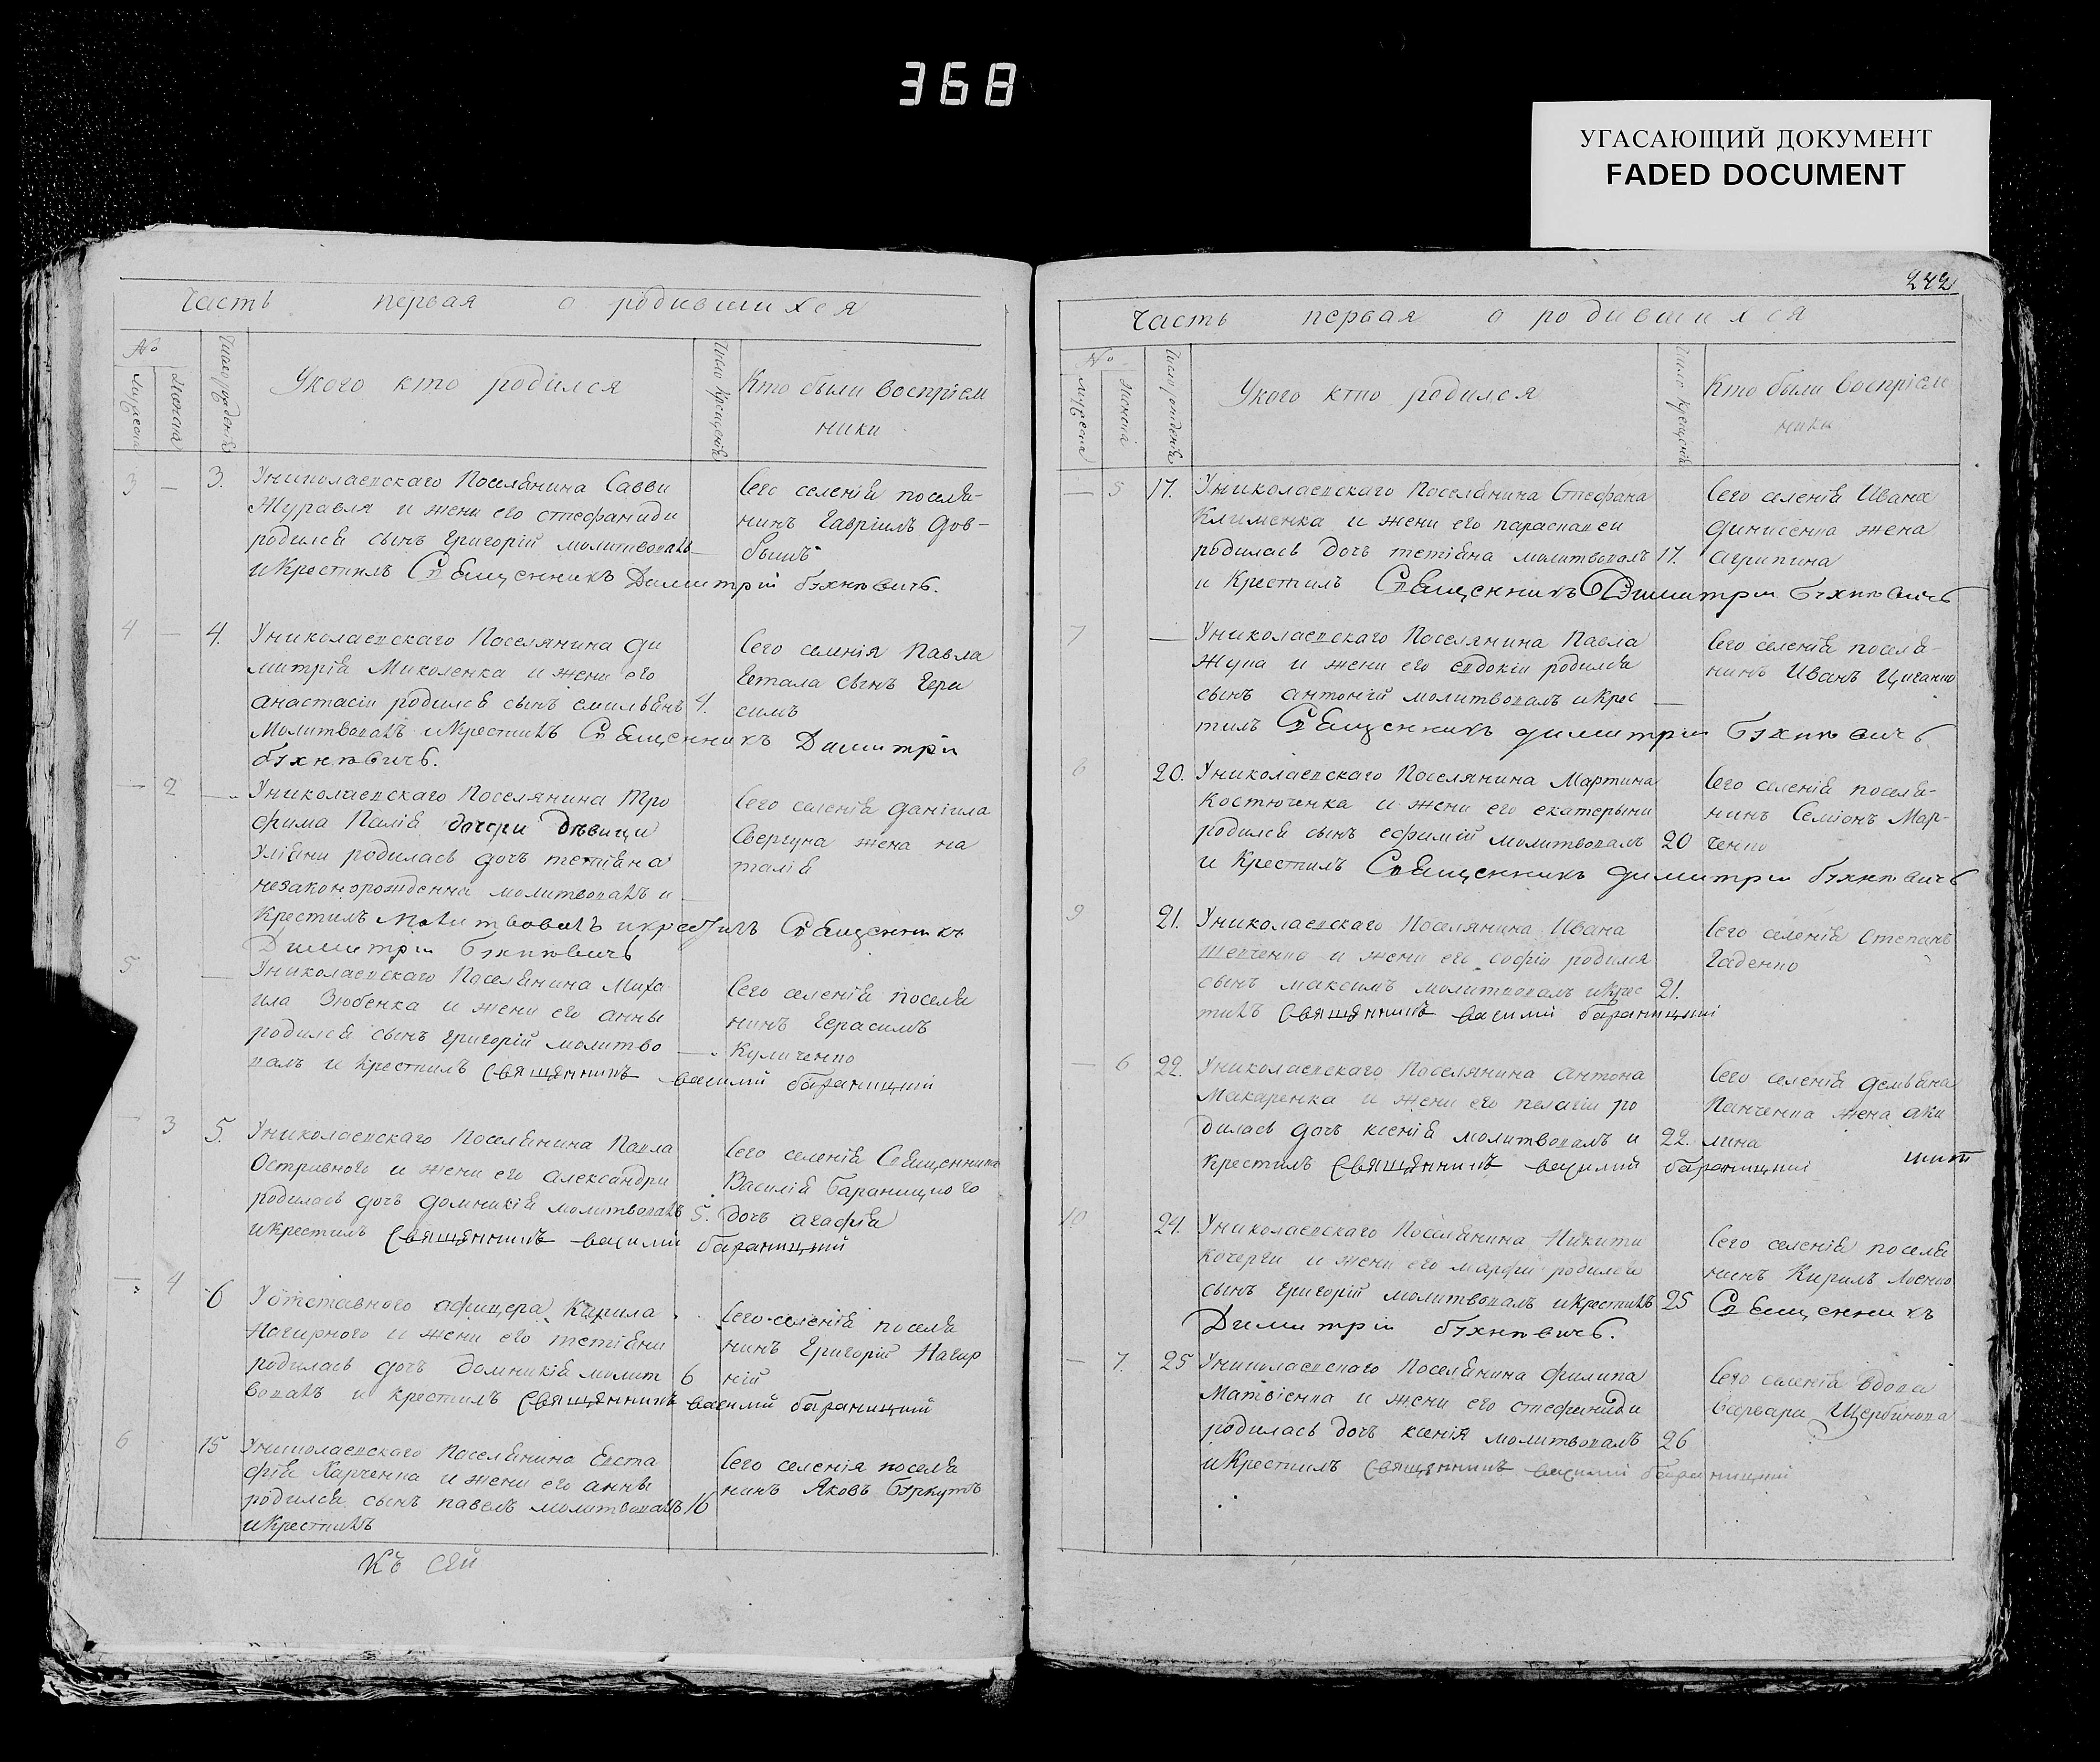 368
УГАСАЮЩИЙ ДОКУМЕНТ
FADED DOCUMENT
Часть первая о родившихся
№
Мужеска
Женска
Число рожденія
У кого кто родился
Число крещенія
Кто были воспріем
ники
3 — 3. У николаевскаго Поселянина Савви
Журавля и жени его стефаниди
родился сынъ Григорій молитвовалъ —
и крестилъ Священникъ Димитрій Бѣхновичъ.
Сего селенія поселя-
нинъ Гавріилъ Дов-
бышъ
4 — 4. У николаевскаго Поселянина Ди
митрія Миколенка и жени его
анастасіи родился сынъ емильянъ 4.
молитвовалъ и крестилъ Священникъ Димитрій
Бѣхновичъ.
Сего селенія Павла
Гетала сынъ Гера
симъ
— 2 — У николаевскаго Поселянина Тро
фима Палія дочери дѣвици
Уліяни родилась дочь тетіяна
незаконорожденна молитвовалъ и —
крестилъ молитвовалъ и крестилъ Священникъ
Димитрій Бѣхновичъ
Сего селенія Даніила
Свергуна жена на
талія
5 — У николаевскаго Поселянина Миха
ила Зюбенка и жени его анны
родился сынъ Григорій молитво —
валъ и крестилъ священникъ василій бараницкій
Сего селенія поселя
нинъ Герасимъ
Куличенко
— 3 5. У николаевскаго Поселянина Павла
Островного и жени его александри
родилась дочь домникія молитвовалъ 5.
и крестилъ священникъ василій бараницкій
Сего селенія Священника
Василія Бараницкого
дочь агафія
— 4 6 У отставного офицера Кирила
Нагирного и жени его тетіяни
родилась дочь домникія молит 6
вовалъ и крестилъ священникъ василій бараницкій
Сего селенія поселя
нинъ Григорій Нагир
ній
6 15 У николаевскаго Поселянина Евста
фія Харченка и жени его анны
родился сынъ павелъ молитвовалъ 16
и крестилъ
Сего селенія поселя
нинъ Яковъ Бѣркутъ
Къ сей
242
Часть первая о родившихся
№
мужеска
женска
Число рожденія
У кого кто родился
Число крещенія
Кто были воспріем
ники
— 5 17. У николаевскаго Поселянина Стефана
Клименка и жени его параскевеи
родилась дочь тетіяна молитвовалъ 17.
и крестилъ Священникъ Димитрій Бѣхновичъ
Сего селенія Ивана
Динисенка жена
агрипина
7 — У николаевскаго Поселянина Павла
Жука и жени его евдокіи родился
сынъ антоній молитвовалъ и крес —
тилъ Священникъ Димитрій Бѣхновичъ
Сего селенія поселя-
нинъ Иванъ Циганко
8 20. У николаевскаго Поселянина Мартина
Костюченка и жени его екатерыни
родился сынъ ефимій молитвовалъ 20
и крестилъ Священникъ Димитрій Бѣхновичъ
Сего селенія поселя-
нинъ Семіонъ Мар-
ченко
9 21. У николаевскаго Поселянина Ивана
шевченко и жени его софіи родился
сынъ максимъ молитвовалъ и крес 21.
тилъ священникъ василій бараницкій
Сего селенія Степанъ
Гаденко
— 6 22. У николаевскаго Поселянина антона
Макаренка и жени его пелагіи ро
дилась дочь ксенія молитвовалъ и 22.
крестилъ священникъ василій бараницкій
Сего селенія Демьяна
Панченка жена аки
лина
10 24. У николаевскаго Поселянина Никити
Кочерги и жени его марфи родился
сынъ Григорій молитвовалъ и крестилъ 25 Священникъ
Димитрій Бѣхновичъ.
Сего селенія поселя
нинъ Кирилъ Лоенко
— 7. 25 У николаевскаго Поселянина Филипа
Матвіенка и жени его стефаниди
родилась дочь ксенія молитвовалъ 26
и крестилъ священникъ василій бараницкій
Сего селенія вдова
варвара Щербинова